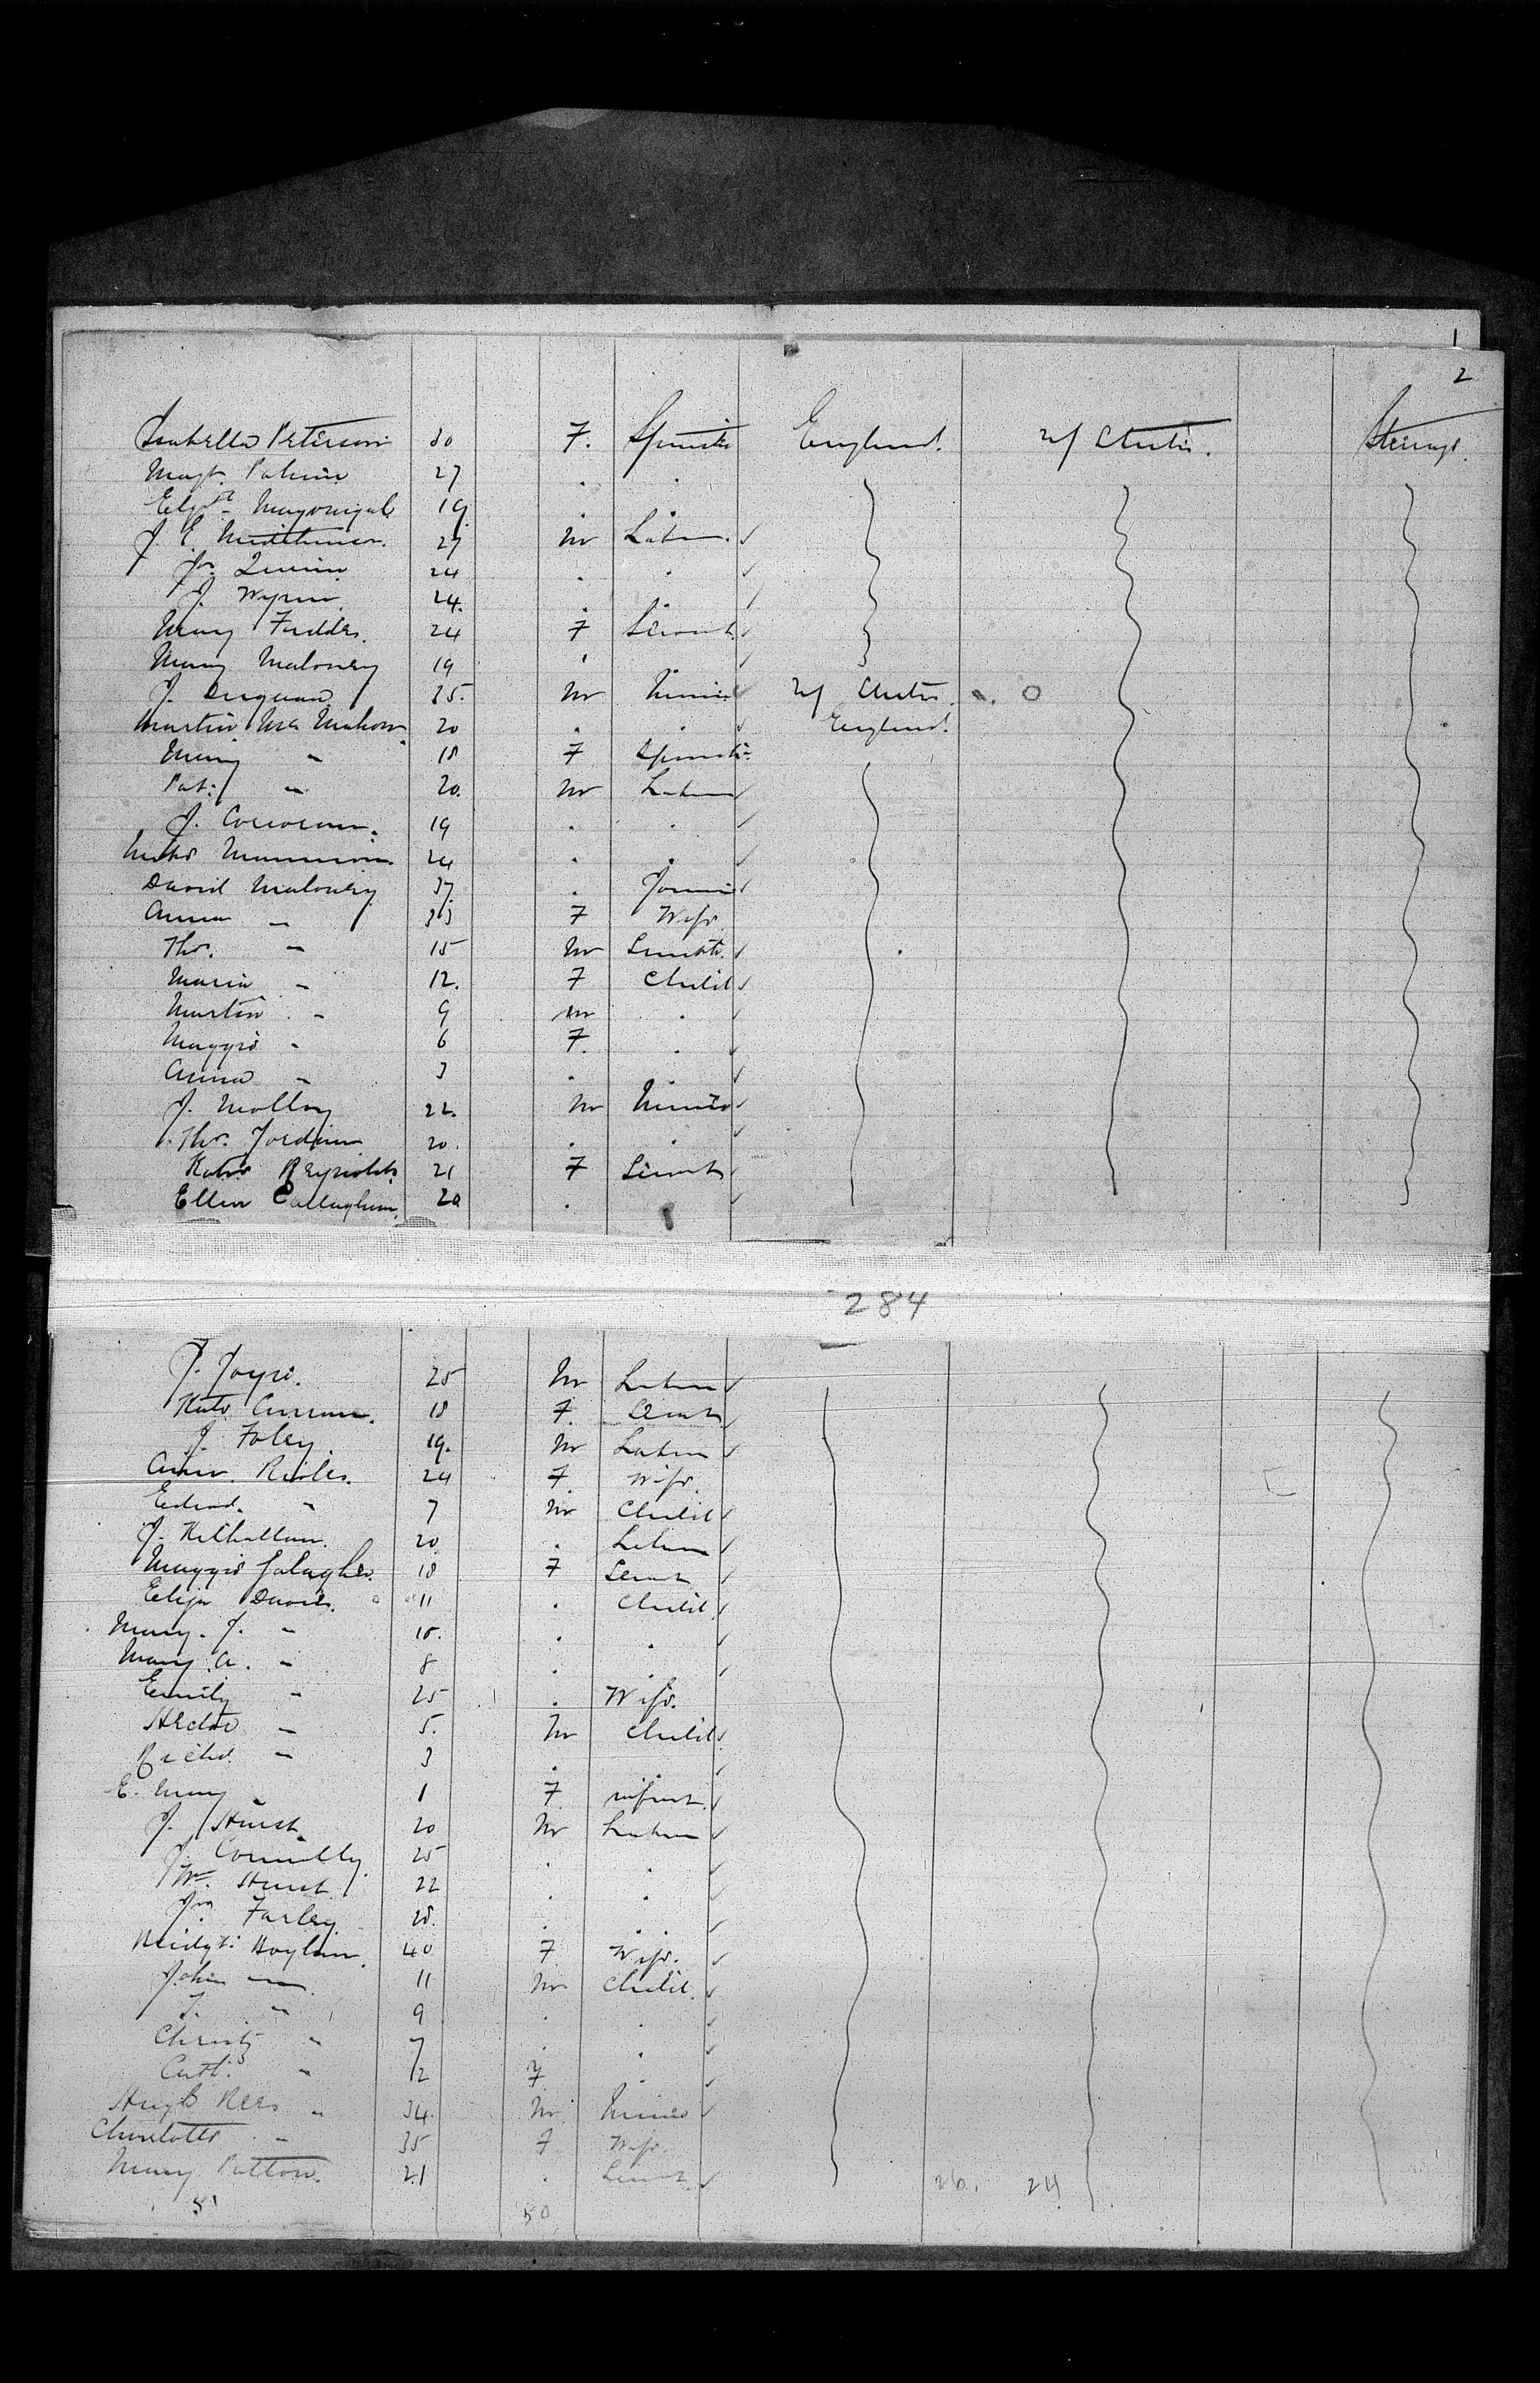 1
2
Isabella Peterson 30 F. Spinster England. U/ States. Steerage.
Magt. 27 . .
Elizth 19 . .
J. E. 27 M Labr.
Jno Quinn 24 . .
J. Wynn 24. . .
Mary 24 F Servant
Mary Maloney 19 . .
J. 35. M Miner U/ States. O
Martin Mc Mahon 20 . . England.
Mary " 18 F Spinster
Pat: " 20. M Labr
J. Corcoran. 19 . .
24 . .
David Maloney 37 . Farmer
Anna " 33 F Wife
Tho. " 15 M
Maria " 12. F Child
Martin " 9 M .
Maggie " 6 F. .
Anna " 3 . .
J. Molloy 22. M Miner
Tho. Jordan 20. . .
Kate Reynolds 21 F Servant
Ellen Callaghan. 20 .
284
J. Joyce. 25 M Labr
Kate Curran. 18 F. Servant
J. Foley. 19. M Labr
24 F. Wife.
Edwd. " 7 M Child
J. 20. . Labr
Maggie Galagher. 18 F Servt
Eliza Davies. 11 . Child
Mary. J. " 10. . .
Mary A. " 8 . .
Emily " 25 . Wife.
Hector " 5. M Child
Richd. " 3 . .
E. Mary " 1 F infant.
J. Hurst. 20 M Labr
J. Connolly. 25 . .
Wm. Hurst 22 . .
Jno Farley. 25. . .
Bridgt: Boylan. 40 F. Wife.
John " 11 M Child.
J. " 9 . .
Christy " 7 . .
Cath: " 2 F .
Hugh Rees " 34. M Miner
Charlotte " 35 F Wife.
Mary Patton. 21 . Servt.
51 50 26. 24